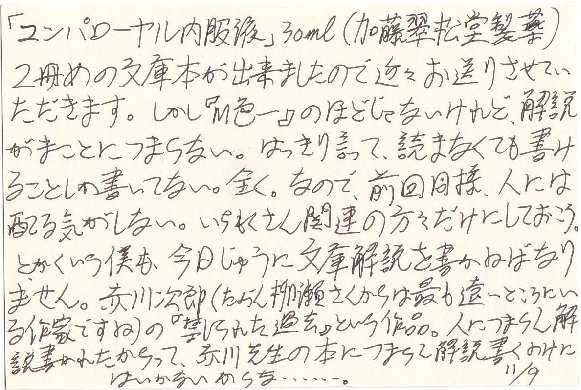 「ユンパローヤル内服液」30ml(加藤翠松堂製薬)
2冊めの文庫本が出来ましたので近々お送りさせてい
ただきます。しかし『N色一』のほどじゃないけれど、解説
がまことにつまらない。はっきり言って、読まなくても書け
ることしか書いてない。全く。なので、前回同様、人には
配る気がしない。いちおくさん関連の方々だけにしておこう。
とかくいう僕も、今日じゅうに文庫解説を書かねばなり
ません。赤川次郎(たぶん柳瀬さんからは最も遠いところにい
る作家ですね)の『禁じられた過去』という作品。人につまらん解
説書かれたからって、赤川先生の本につまらん解説書くわけに
はいかないからな……。 11/9